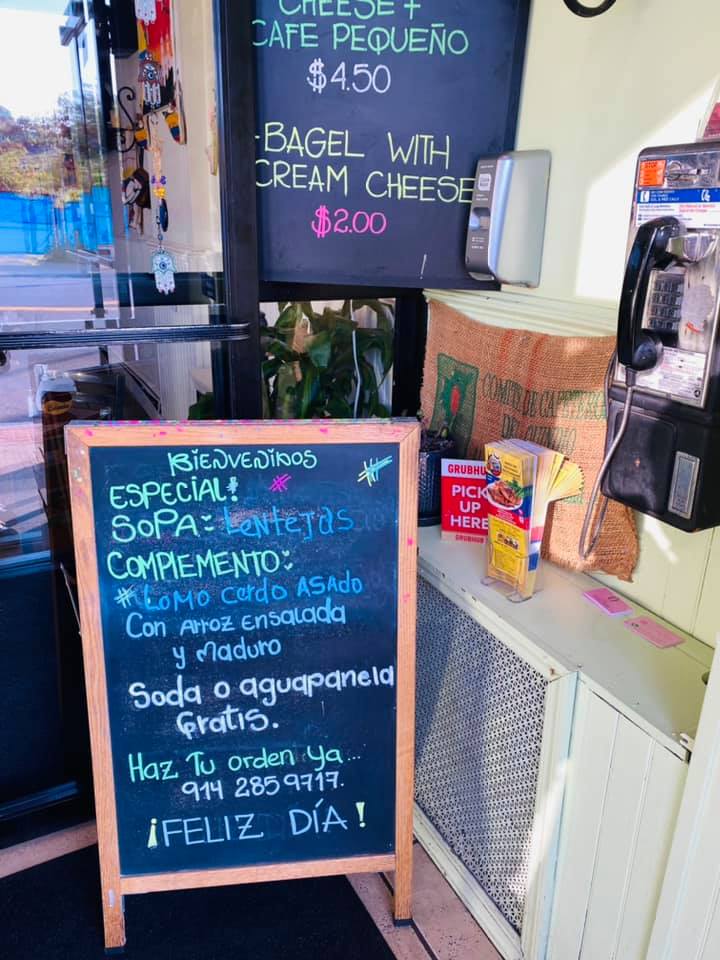 CHEESE +
CAFE PEQUEÑO
$4.50
-BAGEL WITH
CREAM CHEESE
$2.00
BIENVENIDOS
ESPECIAL!
SOPA: Lentejas
COMPLEMENTO:
#LOMO CERDO ASADO
Con Arroz Ensalada
y Maduro
Soda o aguapanela
Gratis.
Haz Tu orden ya...
914 285 9717.
¡FELIZ DÍA!
GRUBHU
PICK
UP
HERE
GRUBHU